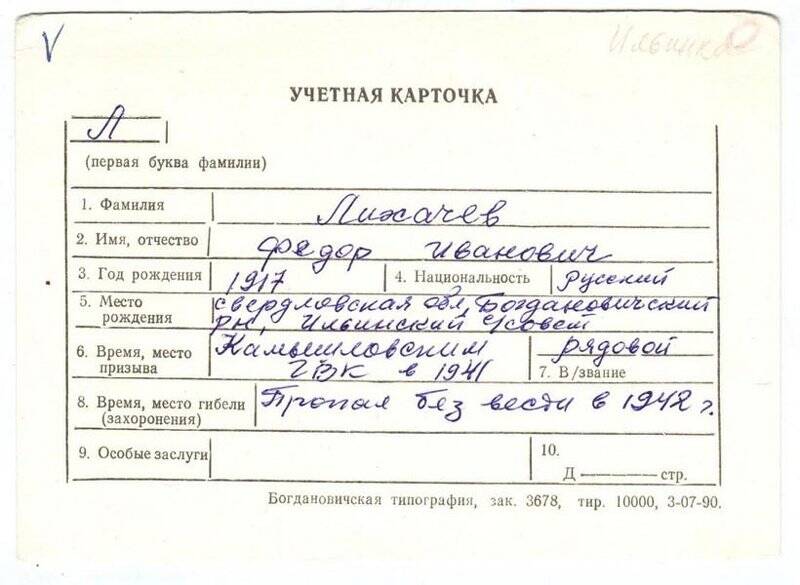 V
Ильинка
УЧЕТНАЯ КАРТОЧКА
Л
(первая буква фамилии)
1. Фамилия Лихачев
2. Имя, отчество Федор Иванович
3. Год рождения 1917 4. Национальность Русский
5. Место рождения свердловская обл, Богдановичский
рн, Ильинский с/совет
6. Время, место призыва Камышловским
ГВК в 1941
рядовой
7. В/звание
8. Время, место гибели (захоронения) Пропал без вести в 1942 г.
9. Особые заслуги
10.
Д — стр.
Богдановичская типография, зак. 3678, тир. 10000, 3-07-90.